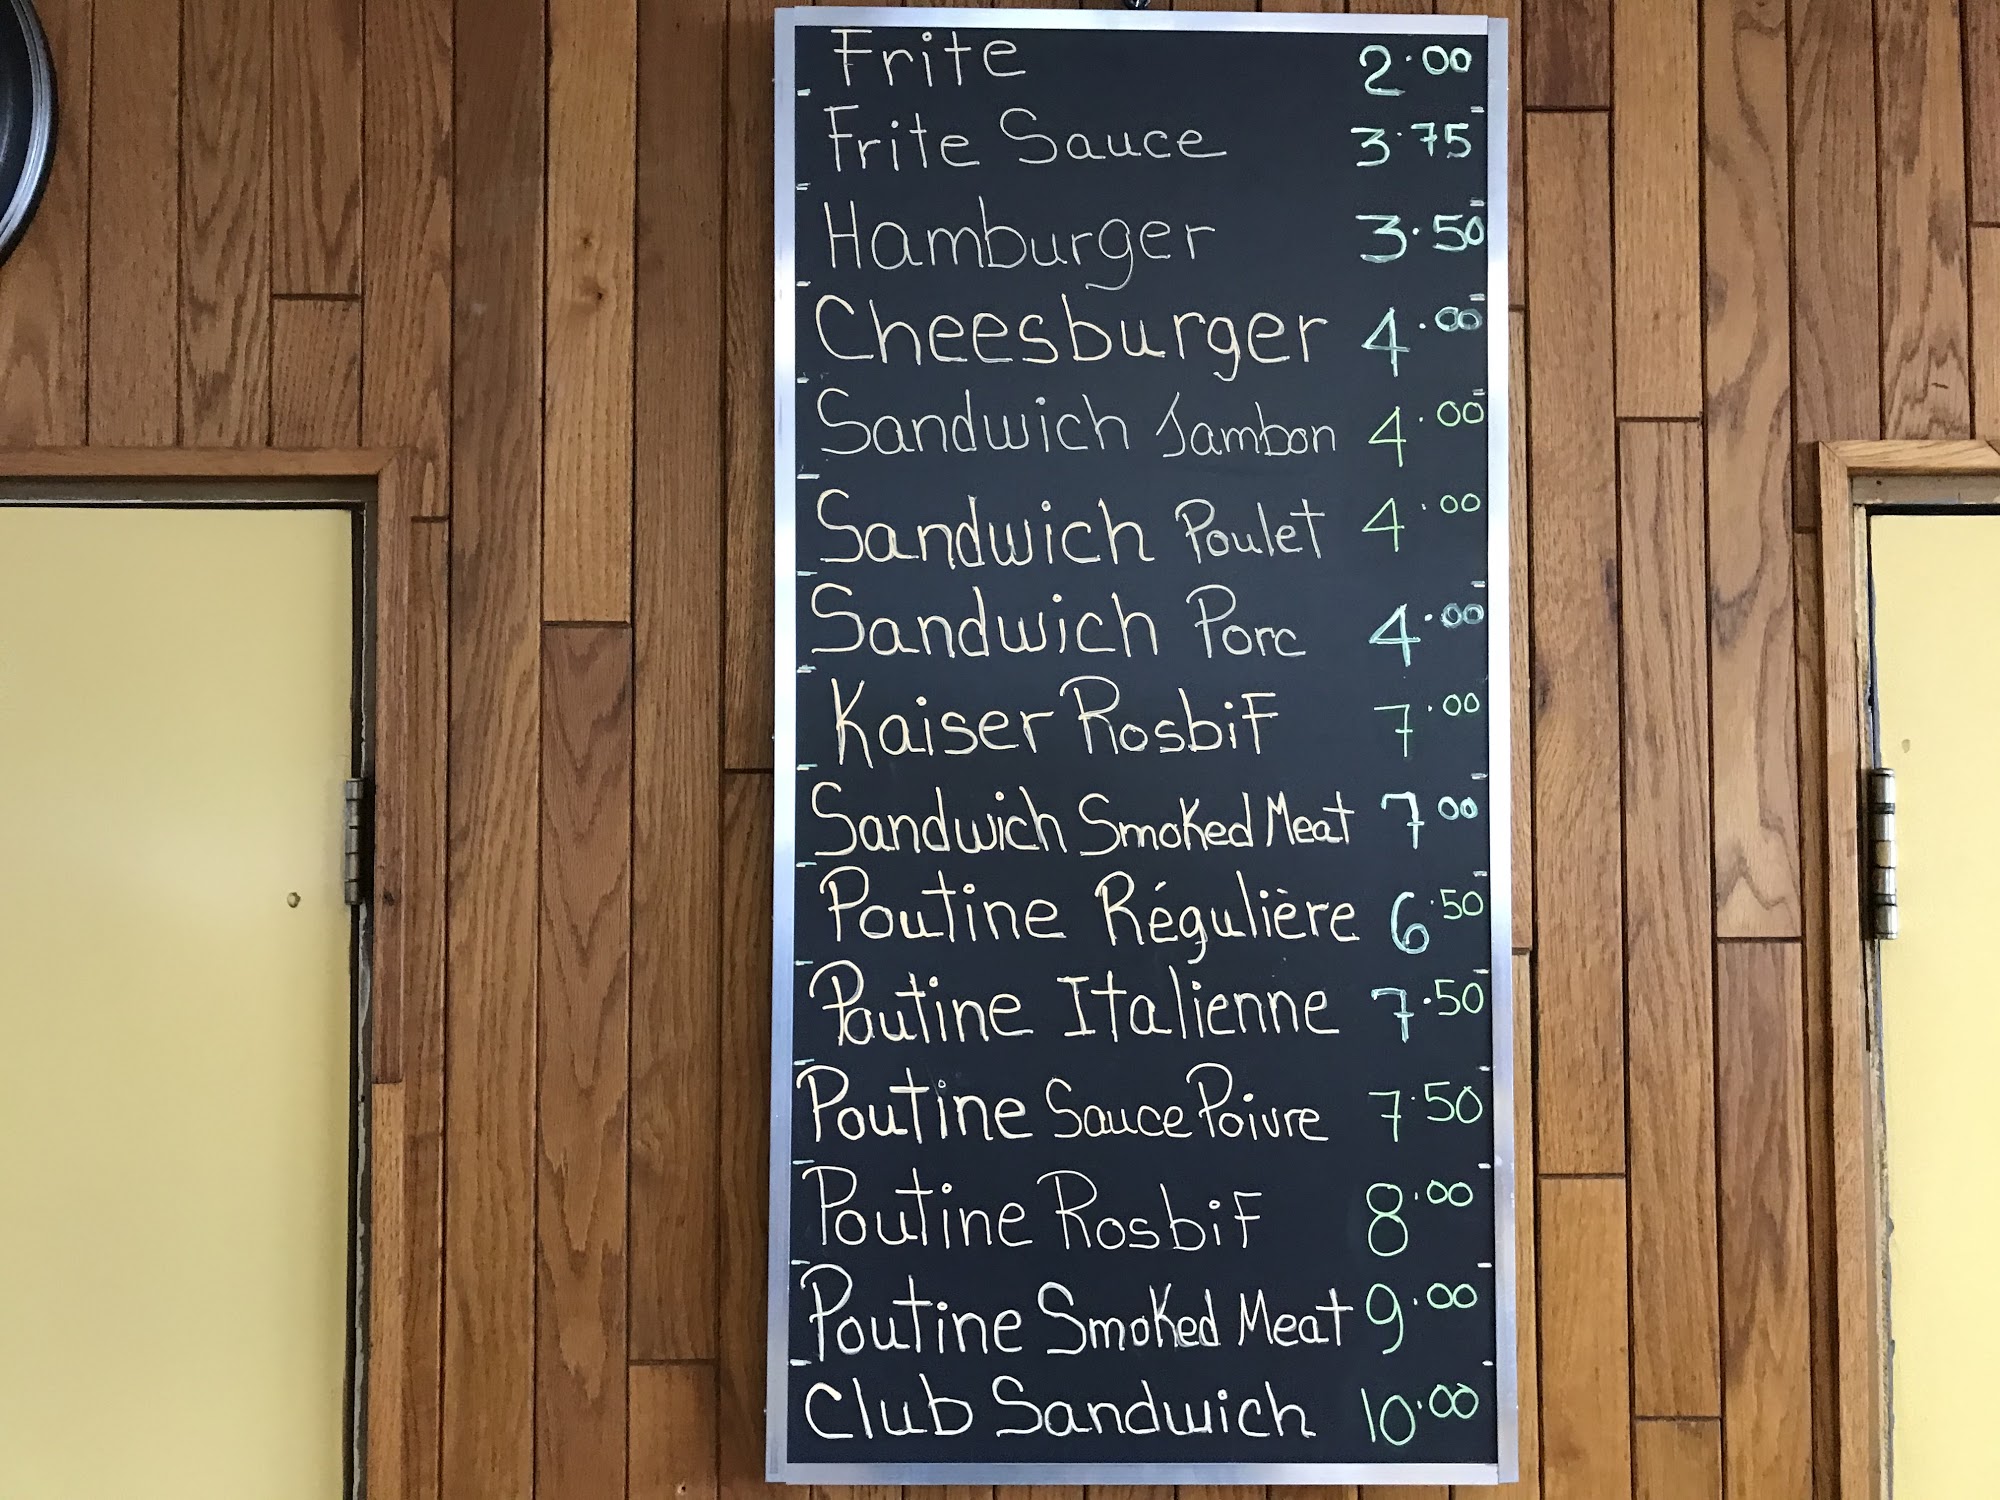 Frite 2.00
Frite Sauce 3.75
Hamburger 3.50
Cheesburger 4.00
Sandwich Jambon 4.00
Sandwich Poulet 4.00
Sandwich Porc 4.00
Kaiser Rosbif 7.00
Sandwich Smoked Meat 7 00
Poutine Régulière 6.50
Poutine Italienne 7.50
Poutine Sauce Poivre 7.50
Poutine Rosbif 8.00
Poutine Smoked Meat 9.00
Club Sandwich 10.00